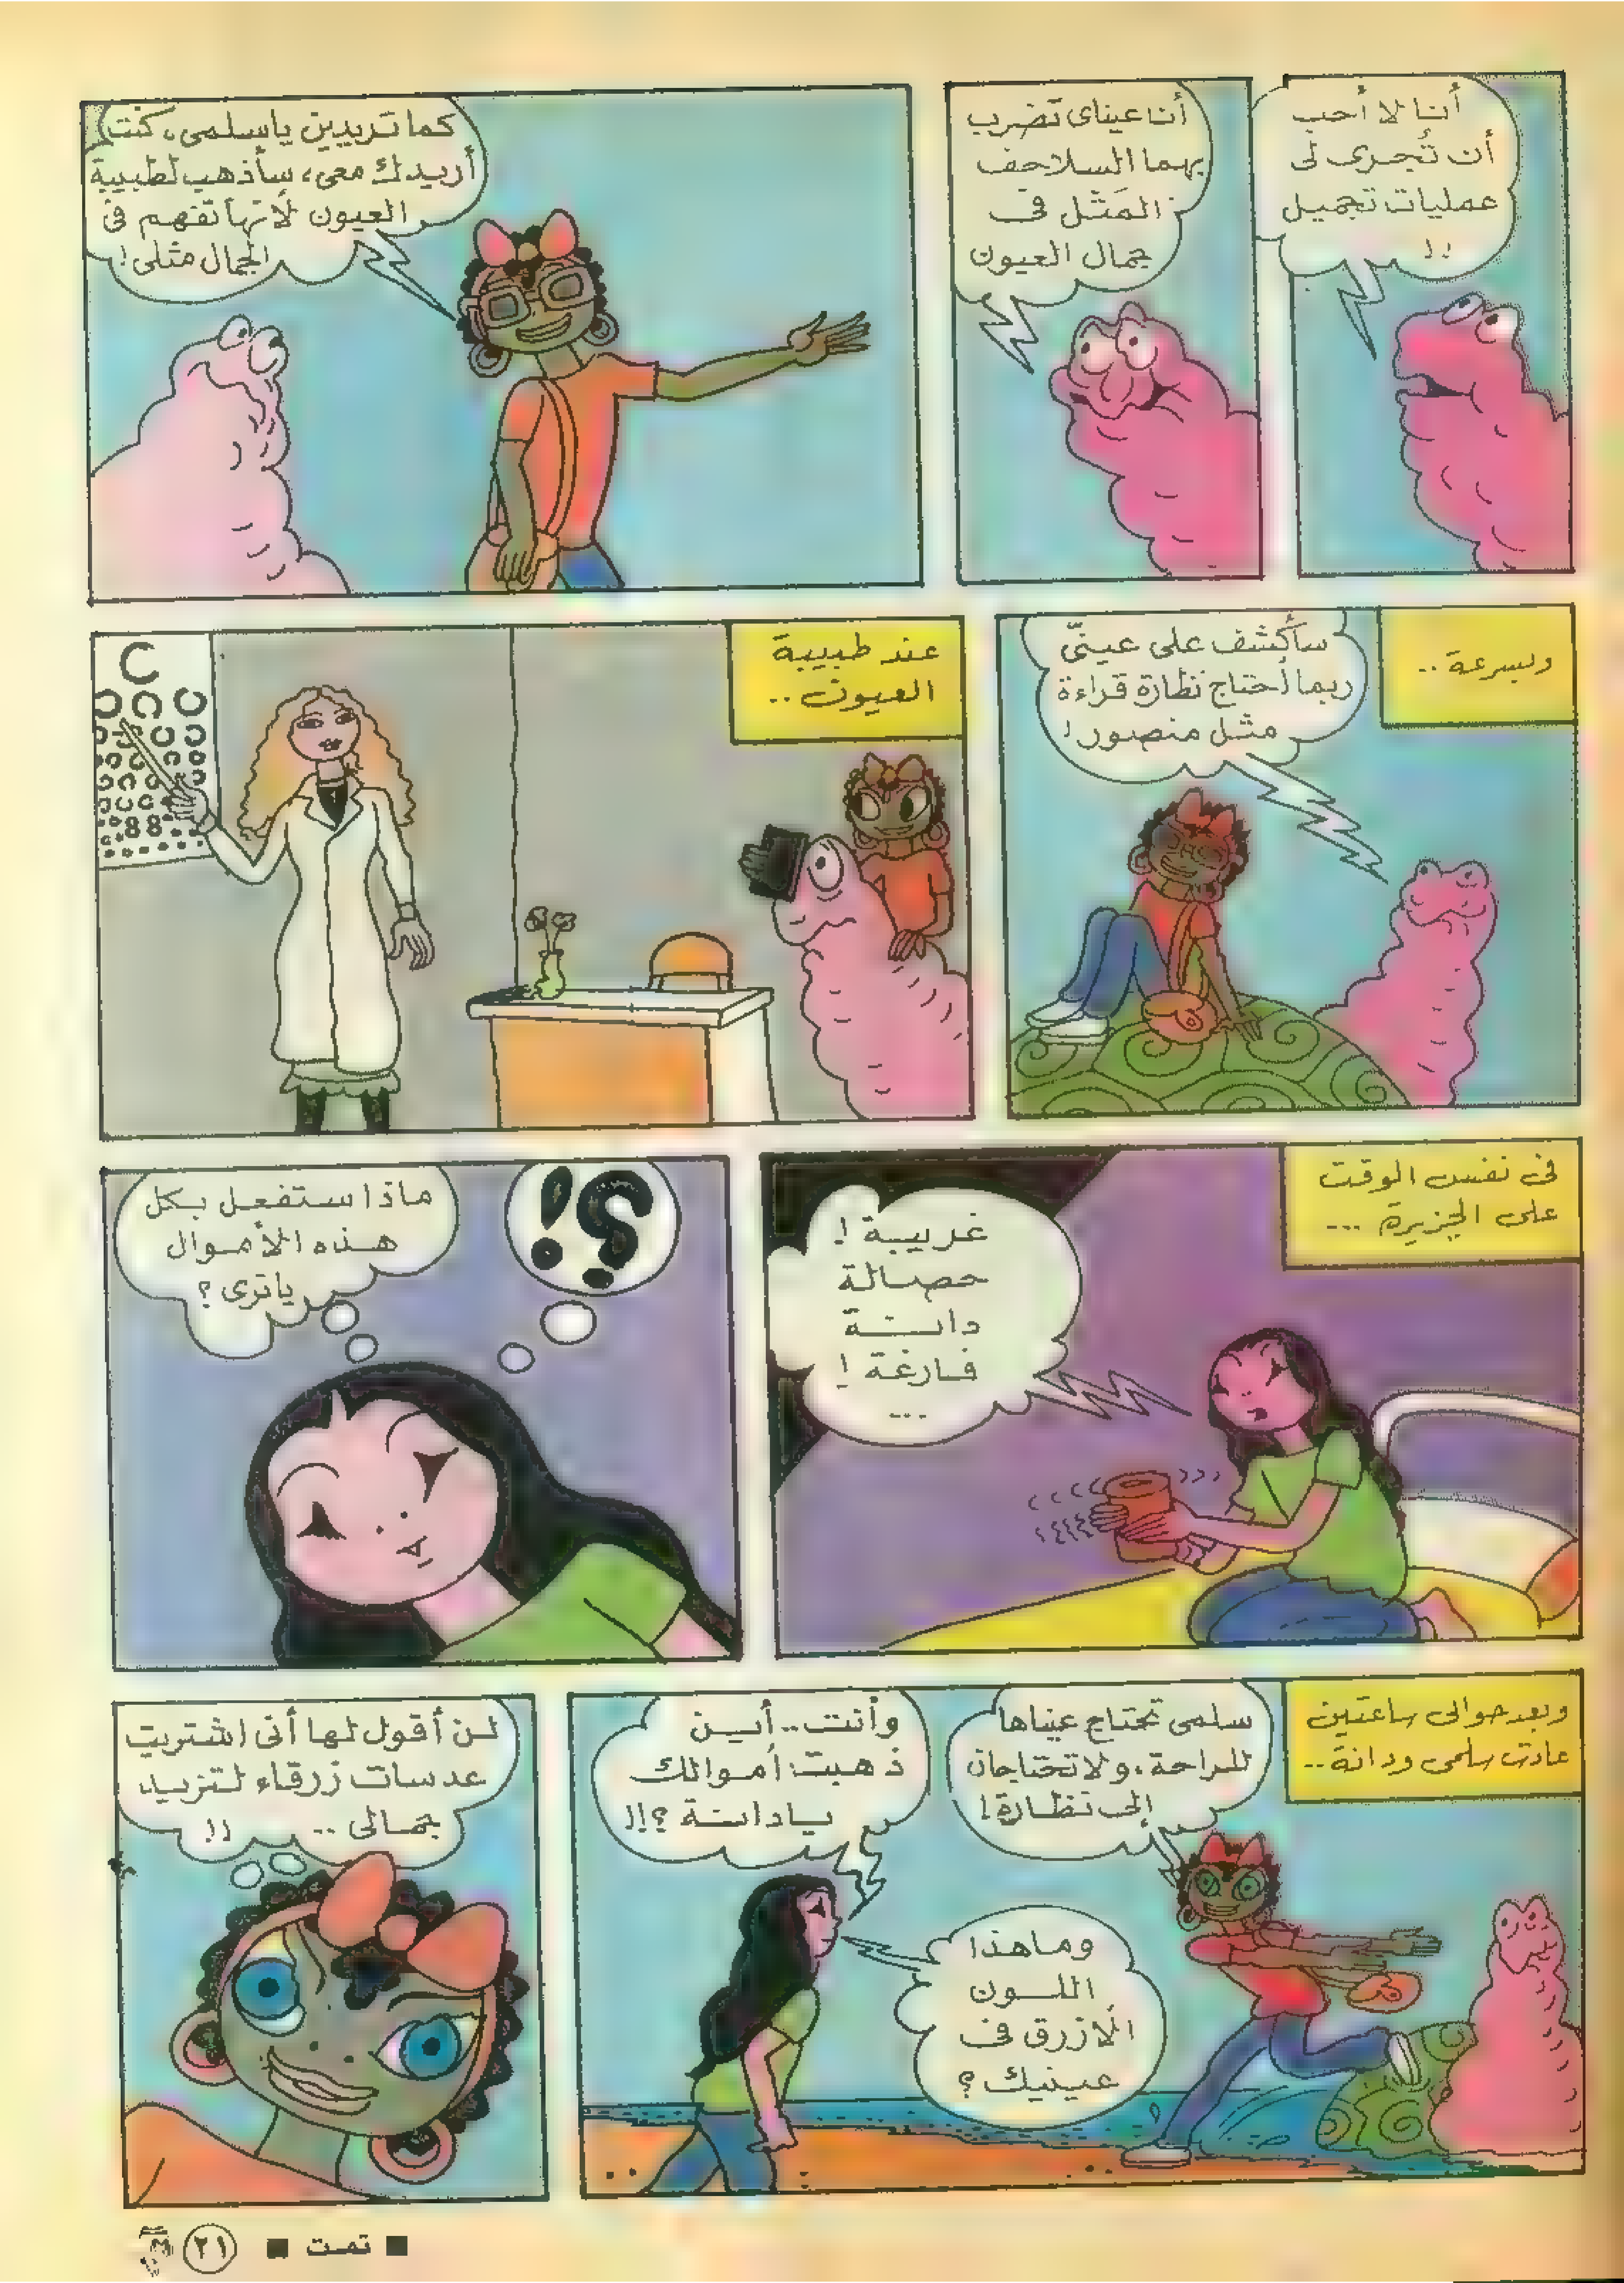 أنا لا أحب
أن تُجرى لى
عمليات تجميل
!!
أنا عيناى تضرب
بهما السلاحف
المَثل فى
جمال العيون
كما تريدين ياسلمى، كنت
أريدك معى، سأذهب لطبيبة
العيون لأنها تفهم فى
الجمال مثلى!
وبسرعة ..
سأكشف على عينىّ
ربما أحتاج نظارة قراءة
مثل منصور!
عند طبيبة
العيون ..
فى نفس الوقت
على الجزيرة ...
غريبة !
حصالة
دانة
فارغة !
...
؟!
ماذا ستفعل بكل
هذه الأموال
ياترى ؟
وبعد حوالى ساعتين
عادت سلمى ودانة ..
سلمى تحتاج عيناها
للراحة، ولا تحتاجان
إلى نظارة!
وأنت .. أين
ذهبت أموالك
يادانة ؟!!
وما هذا
اللون
الأزرق فى
عينيك ؟
لن أقول لها أنى اشتريت
عدسات زرقاء لتزيد
جمالى .. !!
■ تمت ■
٢١